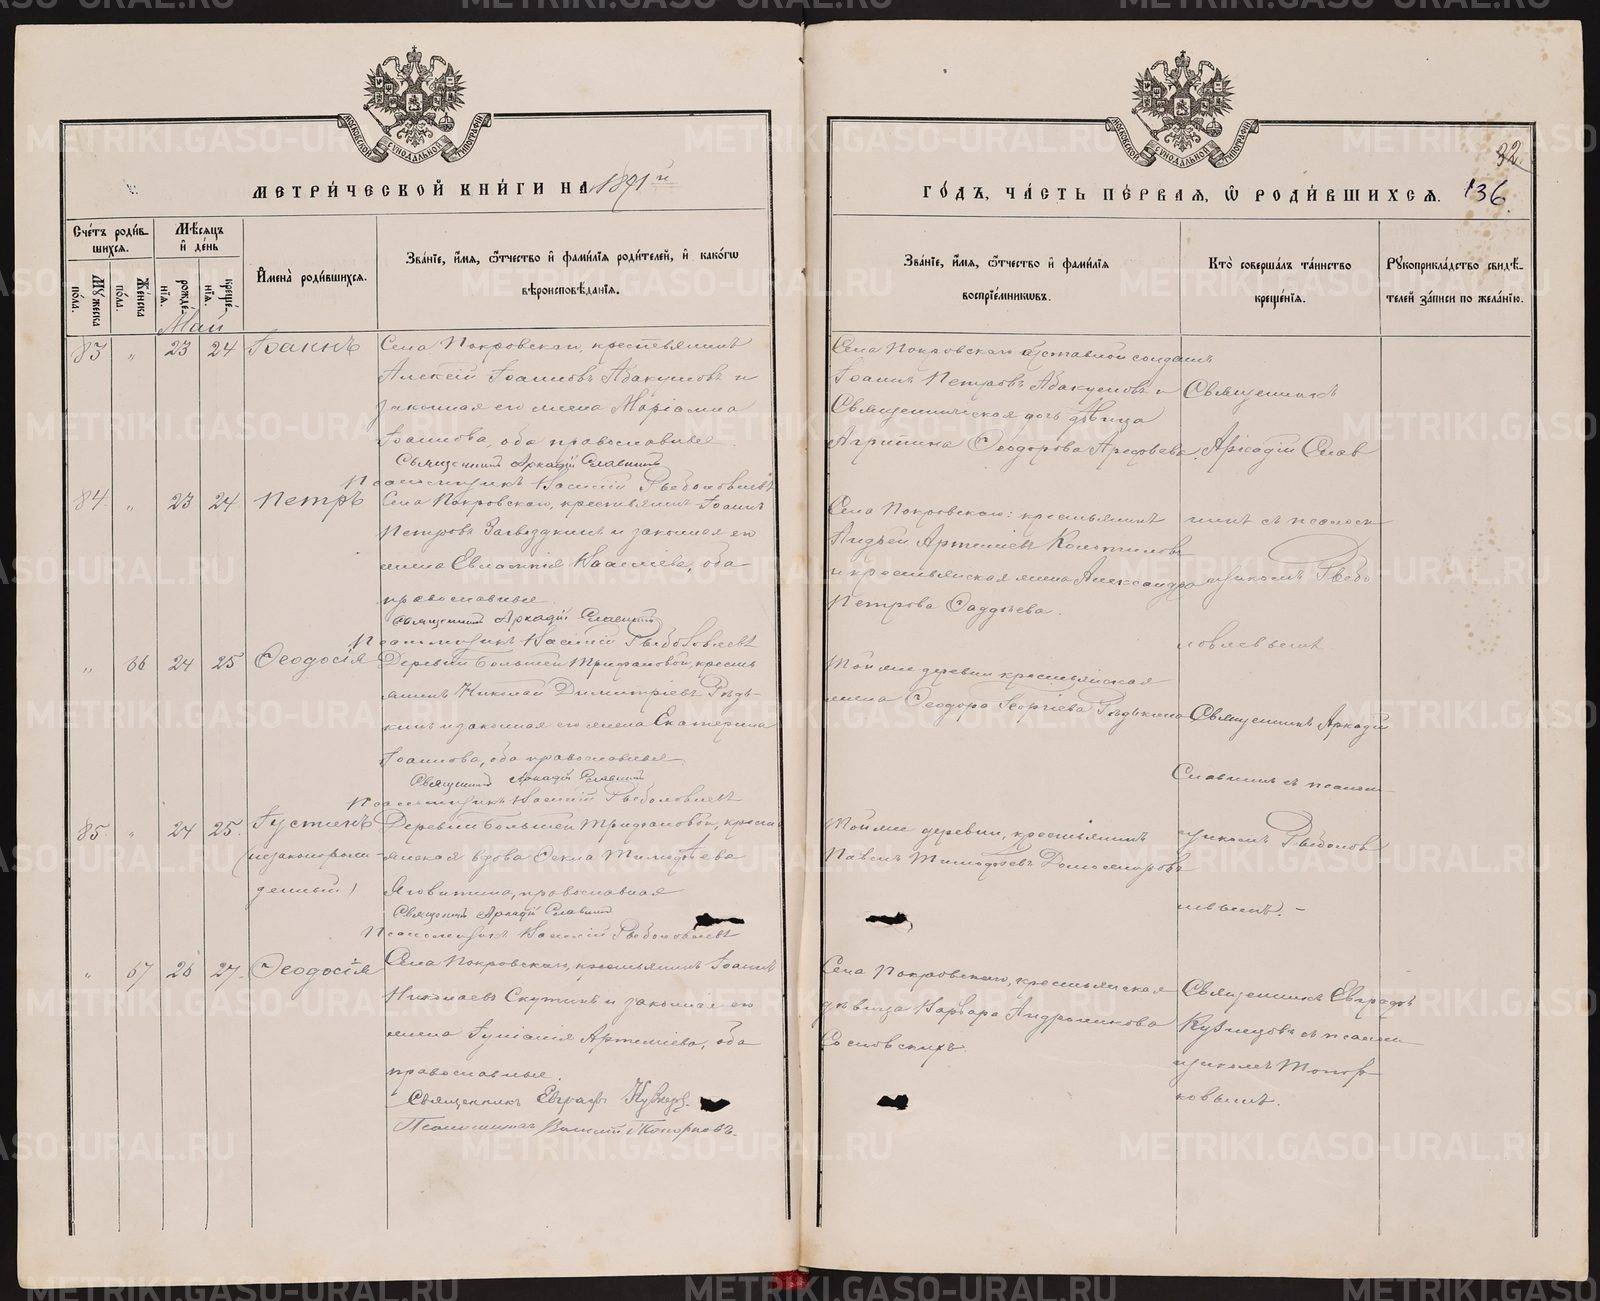 МЕТРИ́ЧЕСКОЙ КНИ́ГИ НА 1891й
ГО́ДЪ, ЧА́СТЬ ПЕ́РВАЯ, Ѡ РОДИ́ВШИХСЯ.
32
136.
МОСКОВСКОЙ СѴНОДАЛЬНОЙ ТИПОГРАФІИ
МОСКОВСКОЙ СѴНОДАЛЬНОЙ ТИПОГРАФІИ
Сче́тъ роди́в-
шихся.
Мꙋжеска
по́ла.
Же́нска
по́ла.
Мѣ́сяцъ
и҆ де́нь
рожде́-
нїѧ.
креще́-
нїѧ.
И҆мена̀ роди́вшихся.
Зва́нїе, и҆́мя, ѻ҆́тчество и҆ фами́лїя роди́телей, и҆ како́гѡ
вѣроисповѣ́данїѧ.
Зва́нїе, и҆́мя, ѻ҆́тчество и҆ фами́лїя
воспрїе́мникѡвъ.
Кто̀ соверша́лъ та́инство
креще́нїѧ.
Рꙋкоприкла́дство свидѣ́-
телей за́писи по жела́нїю.
Май
83 " 23 24 Іоаннъ
Села Покровскаго, крестьянинъ
Алексѣй Іоанновъ Абакумовъ и
законная его жена Маріамна
Іоаннова, оба православные
Священникъ Аркадій Славнинъ
Псаломщикъ Василій Рыболовлевъ
Села Покровскаго отставной солдатъ
Іоаннъ Петровъ Абакумовъ и
Священническая дочь дѣвица
Агрипина Ѳеодорова Арефьева.
Священникъ
Аркадій Слав
84 " 23 24 Петръ
Села Покровскаго, крестьянинъ Іоаннъ
Петровъ Загвоздкинъ и законная его
жена Евлампія Васильева, оба
православные
Священникъ Аркадій Славнинъ
Псаломщикъ Василій Рыболовлевъ
Села Покровскаго: крестьянинъ
Андрей Артемьевъ
и крестьянская жена Александра
Петрова
нинъ съ псалом
щикомъ Рыбо
ловлевымъ.
" 66 24 25 Ѳеодосія
Деревни Большей Трифановой, кресть
янинъ Николай Димитріевъ Рѣдь-
кинъ и законная его жена Екатерина
Іоаннова, оба православные
Священникъ Аркадій Славнинъ
Псаломщикъ Василій Рыболовлевъ
Той же деревни крестьянская
жена Ѳеодора Георгіева Рѣдькина
Священникъ Аркадій
Славнинъ съ псалом
85 " 24 25. Іустинъ
(незаконорож-
денный)
Деревни Большей Трифановой, кресть
янская вдова Ѳекла Тимофѣева
Яговитина, православная
Священникъ Аркадій Славнинъ
Псаломщикъ Василій Рыболовлевъ
Той же деревни, крестьянинъ
Павелъ Тимофѣевъ
щикомъ Рыболов
левымъ. -
" 67 26 27. Ѳеодосія
Села Покровскаго, крестьянинъ Іоаннъ
Николаевъ Скутинъ и законная его
жена Іуліанія Артемьева, оба
православные.
Священникъ Евграфъ Кузнецовъ
Псаломщикъ Василій Топорковъ.
Села Покровскаго, крестьянская
дѣвица Варвара Андроникова
Сосновскихъ.
Священникъ Евграфъ
Кузнецовъ съ псалом
щикомъ Топор-
ковымъ.
METRIKI.GASO-URAL.RU